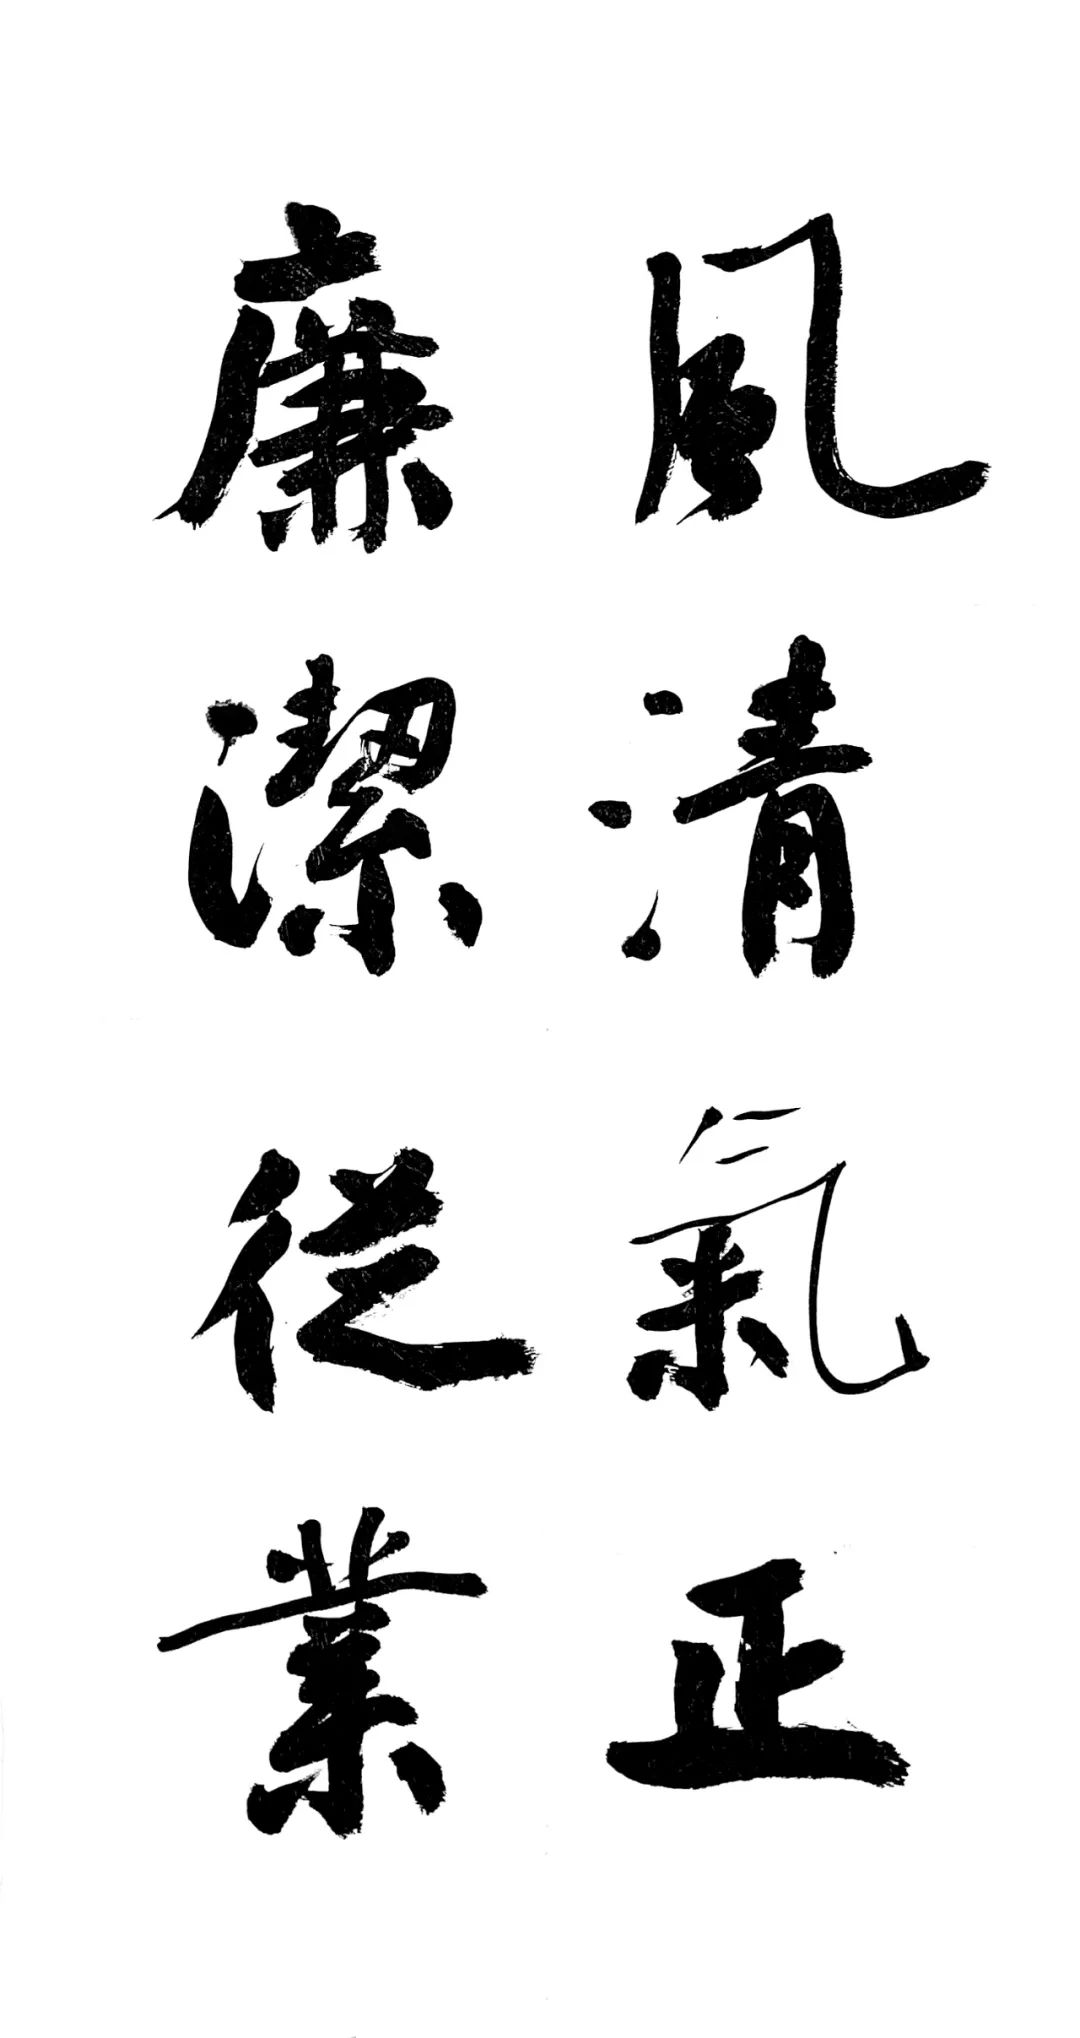 風清氣正
廉潔從業